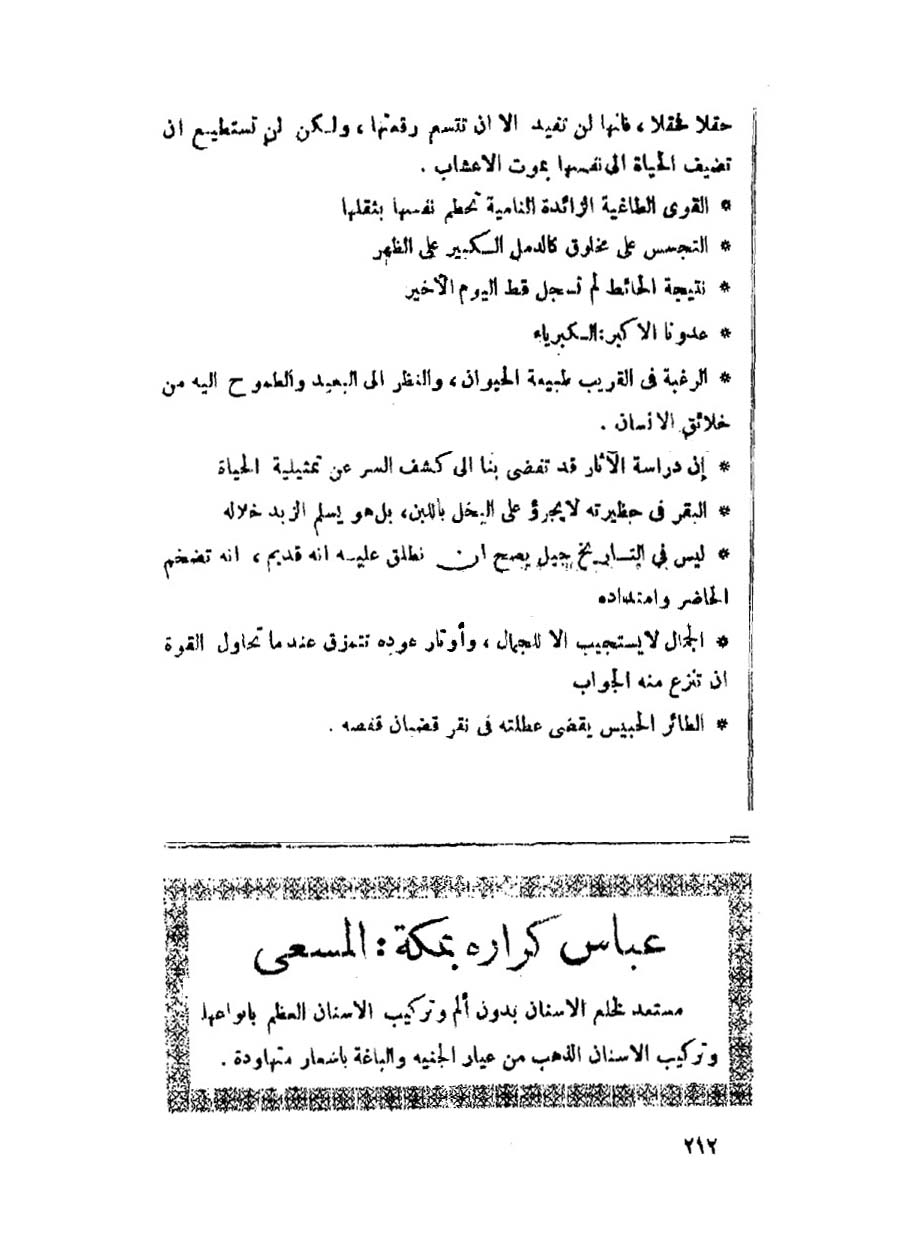 حقلا فحقلا ، فانها لن تفيد الا ان تتسع رقعتها ، ولكن لن تستطيع ان
تضيف الحياة الى نفسها بموت الاعشاب .
* القوى الطاغية الزائدة النامية تحطم نفسها بثقلها
* التجسس على مخلوق كالدمل الكبير على الظهر
* نتيجة الحائط لم تسجل قط اليوم الآخير
* عدونا الاكبر : الكبرياء
* الرغبة فى القريب طبيعة الحيوان ، والنظر الى البعيد والطموح اليه من
خلائق الانسان .
* إن دراسة الآثار قد تفضى بنا الى كشف السر عن تمثيلية الحياة
* البقر فى حظيرته لا يجرؤ على البخل باللبن، بل هو يسلم الزبد خلاله
* ليس في التاريخ جيل يصح ان نطلق عليه انه قديم ، انه تضخم
الحاضر وامتداده
* الجمال لا يستجيب الا للجمال ، وأوتار عوده تتمزق عندما تحاول القوة
ان تنزع منه الجواب
* الطائر الحبيس يقضى عطلته فى نقر قضبان قفصه .
عباس كراره بمكة : المسعى
مستعد لخلع الاسنان بدون ألم وتركيب الاسنان العظم بانواعها
وتركيب الاسنان الذهب من عيار الجنيه والباغة باسعار متهاودة .
٢١٢